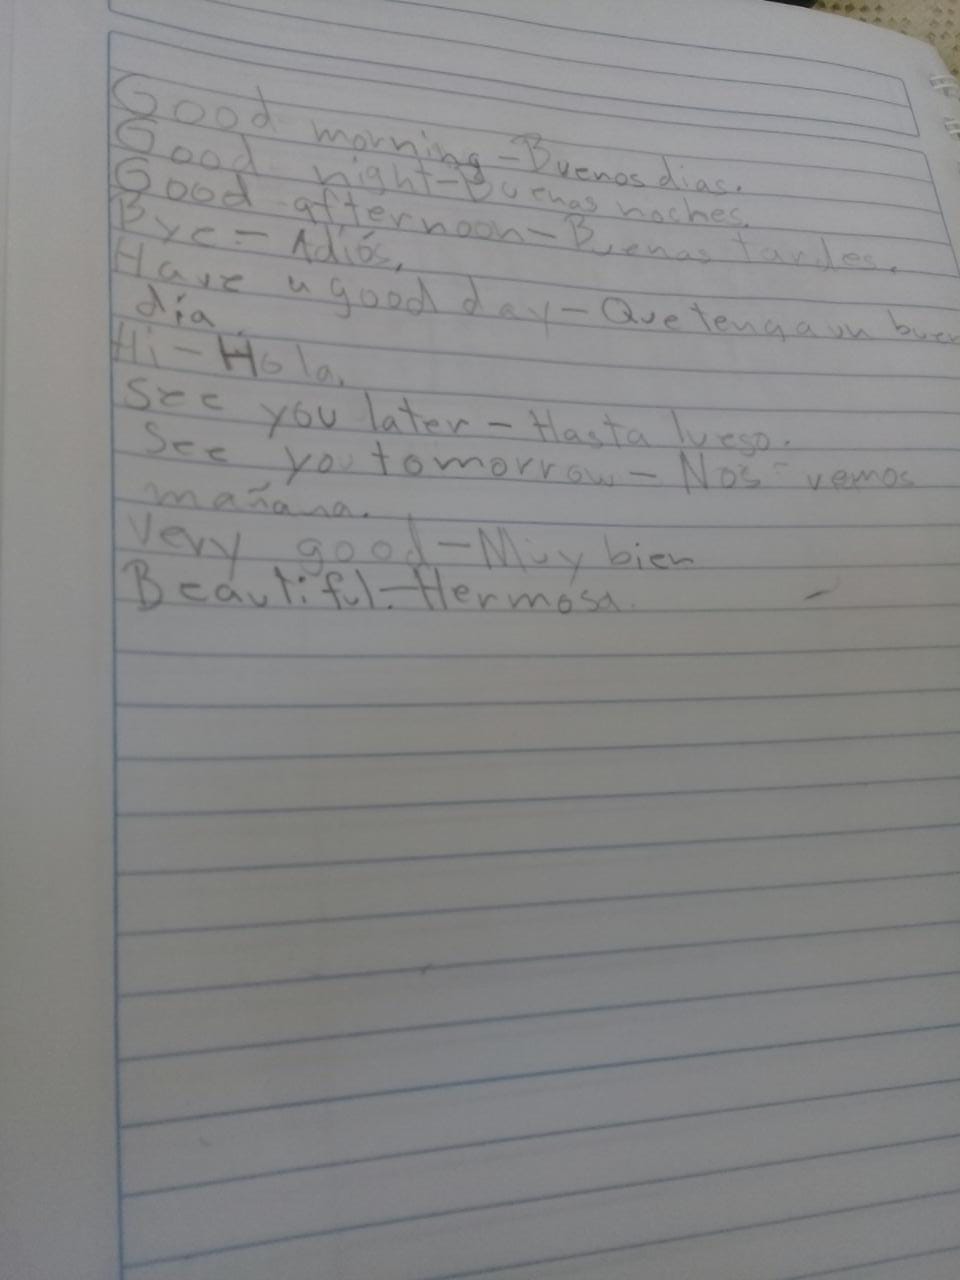 Good morning-Buenos dias.
Good night-Buenas noches.
Good afternoon-Buenas tardes.
Bye-Adiós.
Have a good day-Que tenga un buen
día.
Hi-Hola.
See you later-Hasta luego.
See you tomorrow-Nos vemos
mañana.
Very good-Muy bien
Beautiful-Hermosa.